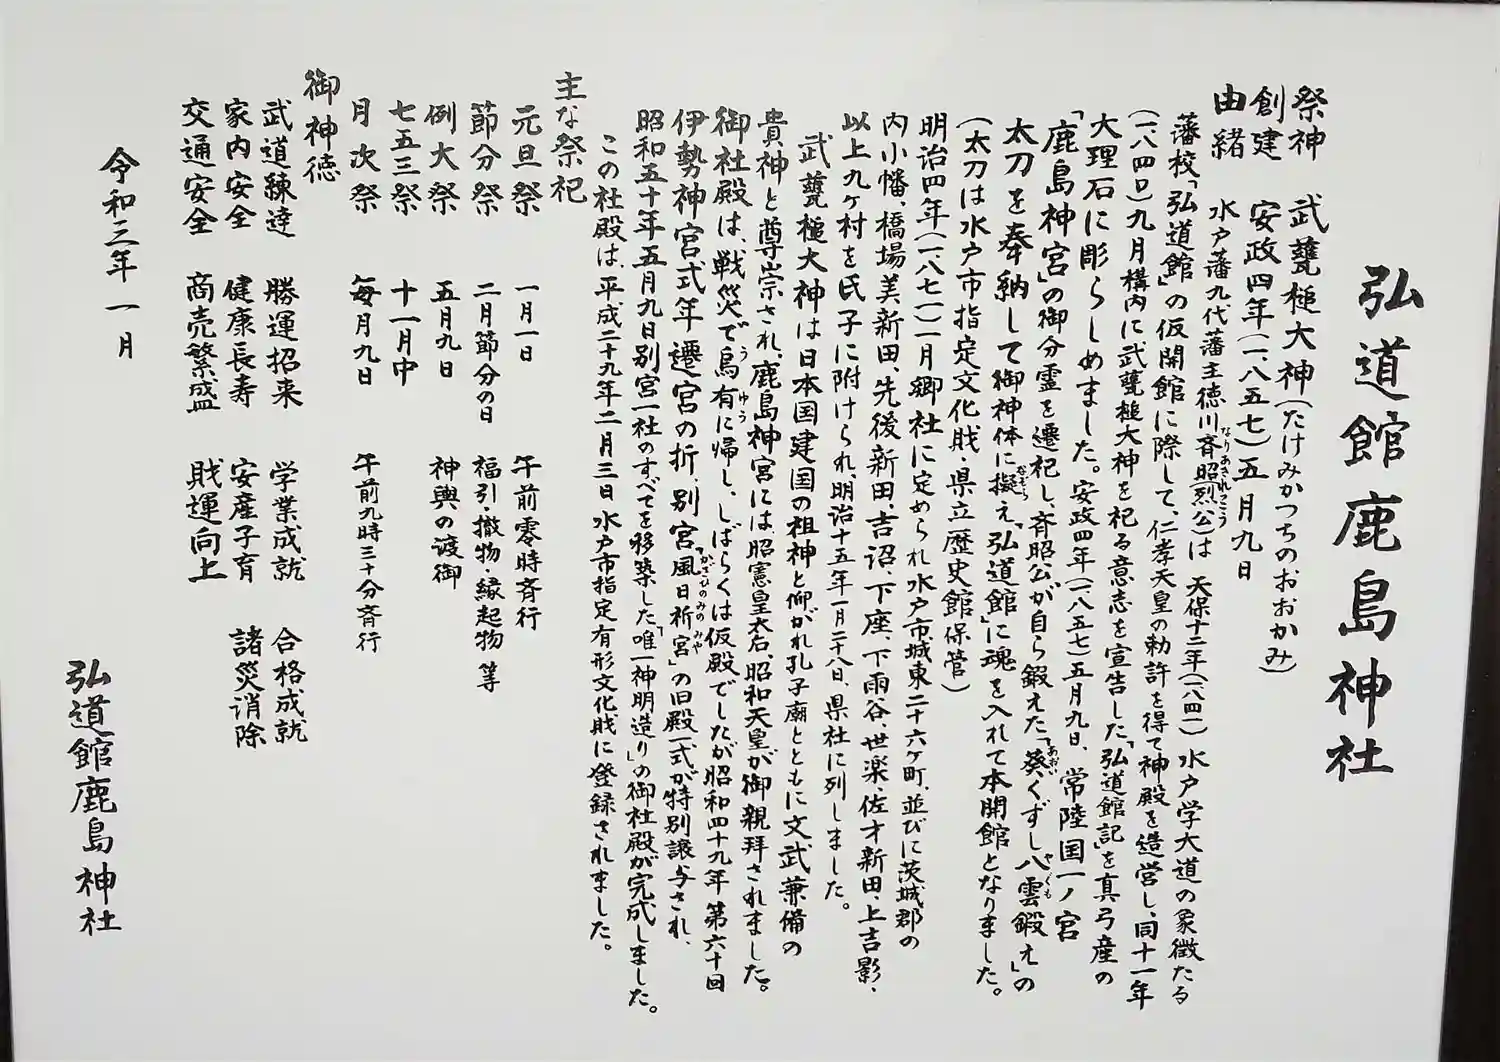 弘道館鹿島神社
祭神　武甕槌大神(たけみかつちのおおかみ)
創建　安政四年(一八五七)五月九日
由緒　水戸藩九代藩主徳川斉昭(烈公)は　天保十二年(一八四一)水戸学大道の象徴たる
藩校「弘道館」の仮開館に際して、仁孝天皇の勅許を得て神殿を造営し、同十一年
(一八四〇)九月構内に武甕槌大神を祀る意志を宣告した「弘道館記」を真弓産の
大理石に彫らしめました。安政四年(一八五七)五月九日、常陸国一ノ宮
「鹿島神宮」の御分霊を遷祀し、斉昭公が自ら鍛えた「葵くずし八雲鍛え」の
太刀を奉納して御神体に擬え「弘道館」に魂を入れて本開館となりました。
(太刀は水戸市指定文化財・県立歴史館保管)
明治四年(一八七一)一月郷社に定められ水戸市城東二十六ヶ町、並びに茨城郡の
内小幡、橋場美新田、先後新田、吉沼、下座、下雨谷、世楽、佐才新田、上吉影、
以上九ヶ村を氏子に附けられ、明治十五年一月二十八日、県社に列しました。
武甕槌大神は日本国建国の祖神と仰がれ孔子廟とともに文武兼備の
貴神と尊崇され、鹿島神宮には、昭憲皇太后、昭和天皇が御親拝されました。
御社殿は、戦災で烏有に帰し、しばらくは仮殿でしたが昭和四十九年第六十回
伊勢神宮式年遷宮の折、別宮「風日祈宮」の旧殿一式が特別譲与され、
昭和五十年五月九日別宮一社のすべてを移築した「唯一神明造り」の御社殿が完成しました。
この社殿は、平成二十九年二月三日水戸市指定有形文化財に登録されました。
主な祭祀
元旦祭　一月一日　午前零時斉行
節分祭　二月節分の日　福引・撤物・縁起物 等
例大祭　五月九日　神輿の渡御
七五三祭　十一月中
月次祭　毎月九日　午前九時三十分斉行
御神徳
武道練達　勝運招来　学業成就　合格成就
家内安全　健康長寿　安産子育　諸災消除
交通安全　商売繁盛　財運向上
令和三年一月
弘道館鹿島神社